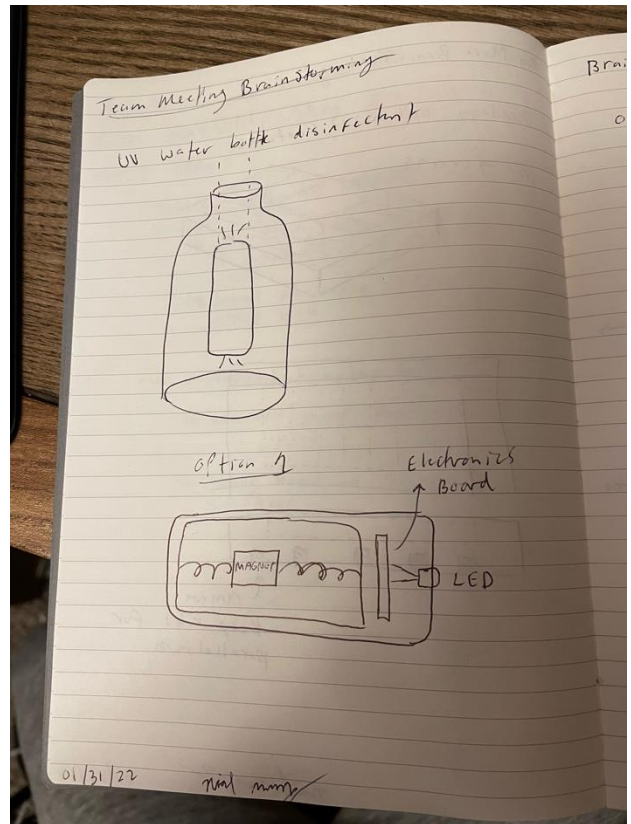 Team Meeting Brainstorming
Brai
UV water bottle disinfectant
o
Option 1
Electronics
Board
MAGNET
LED
01/31/22